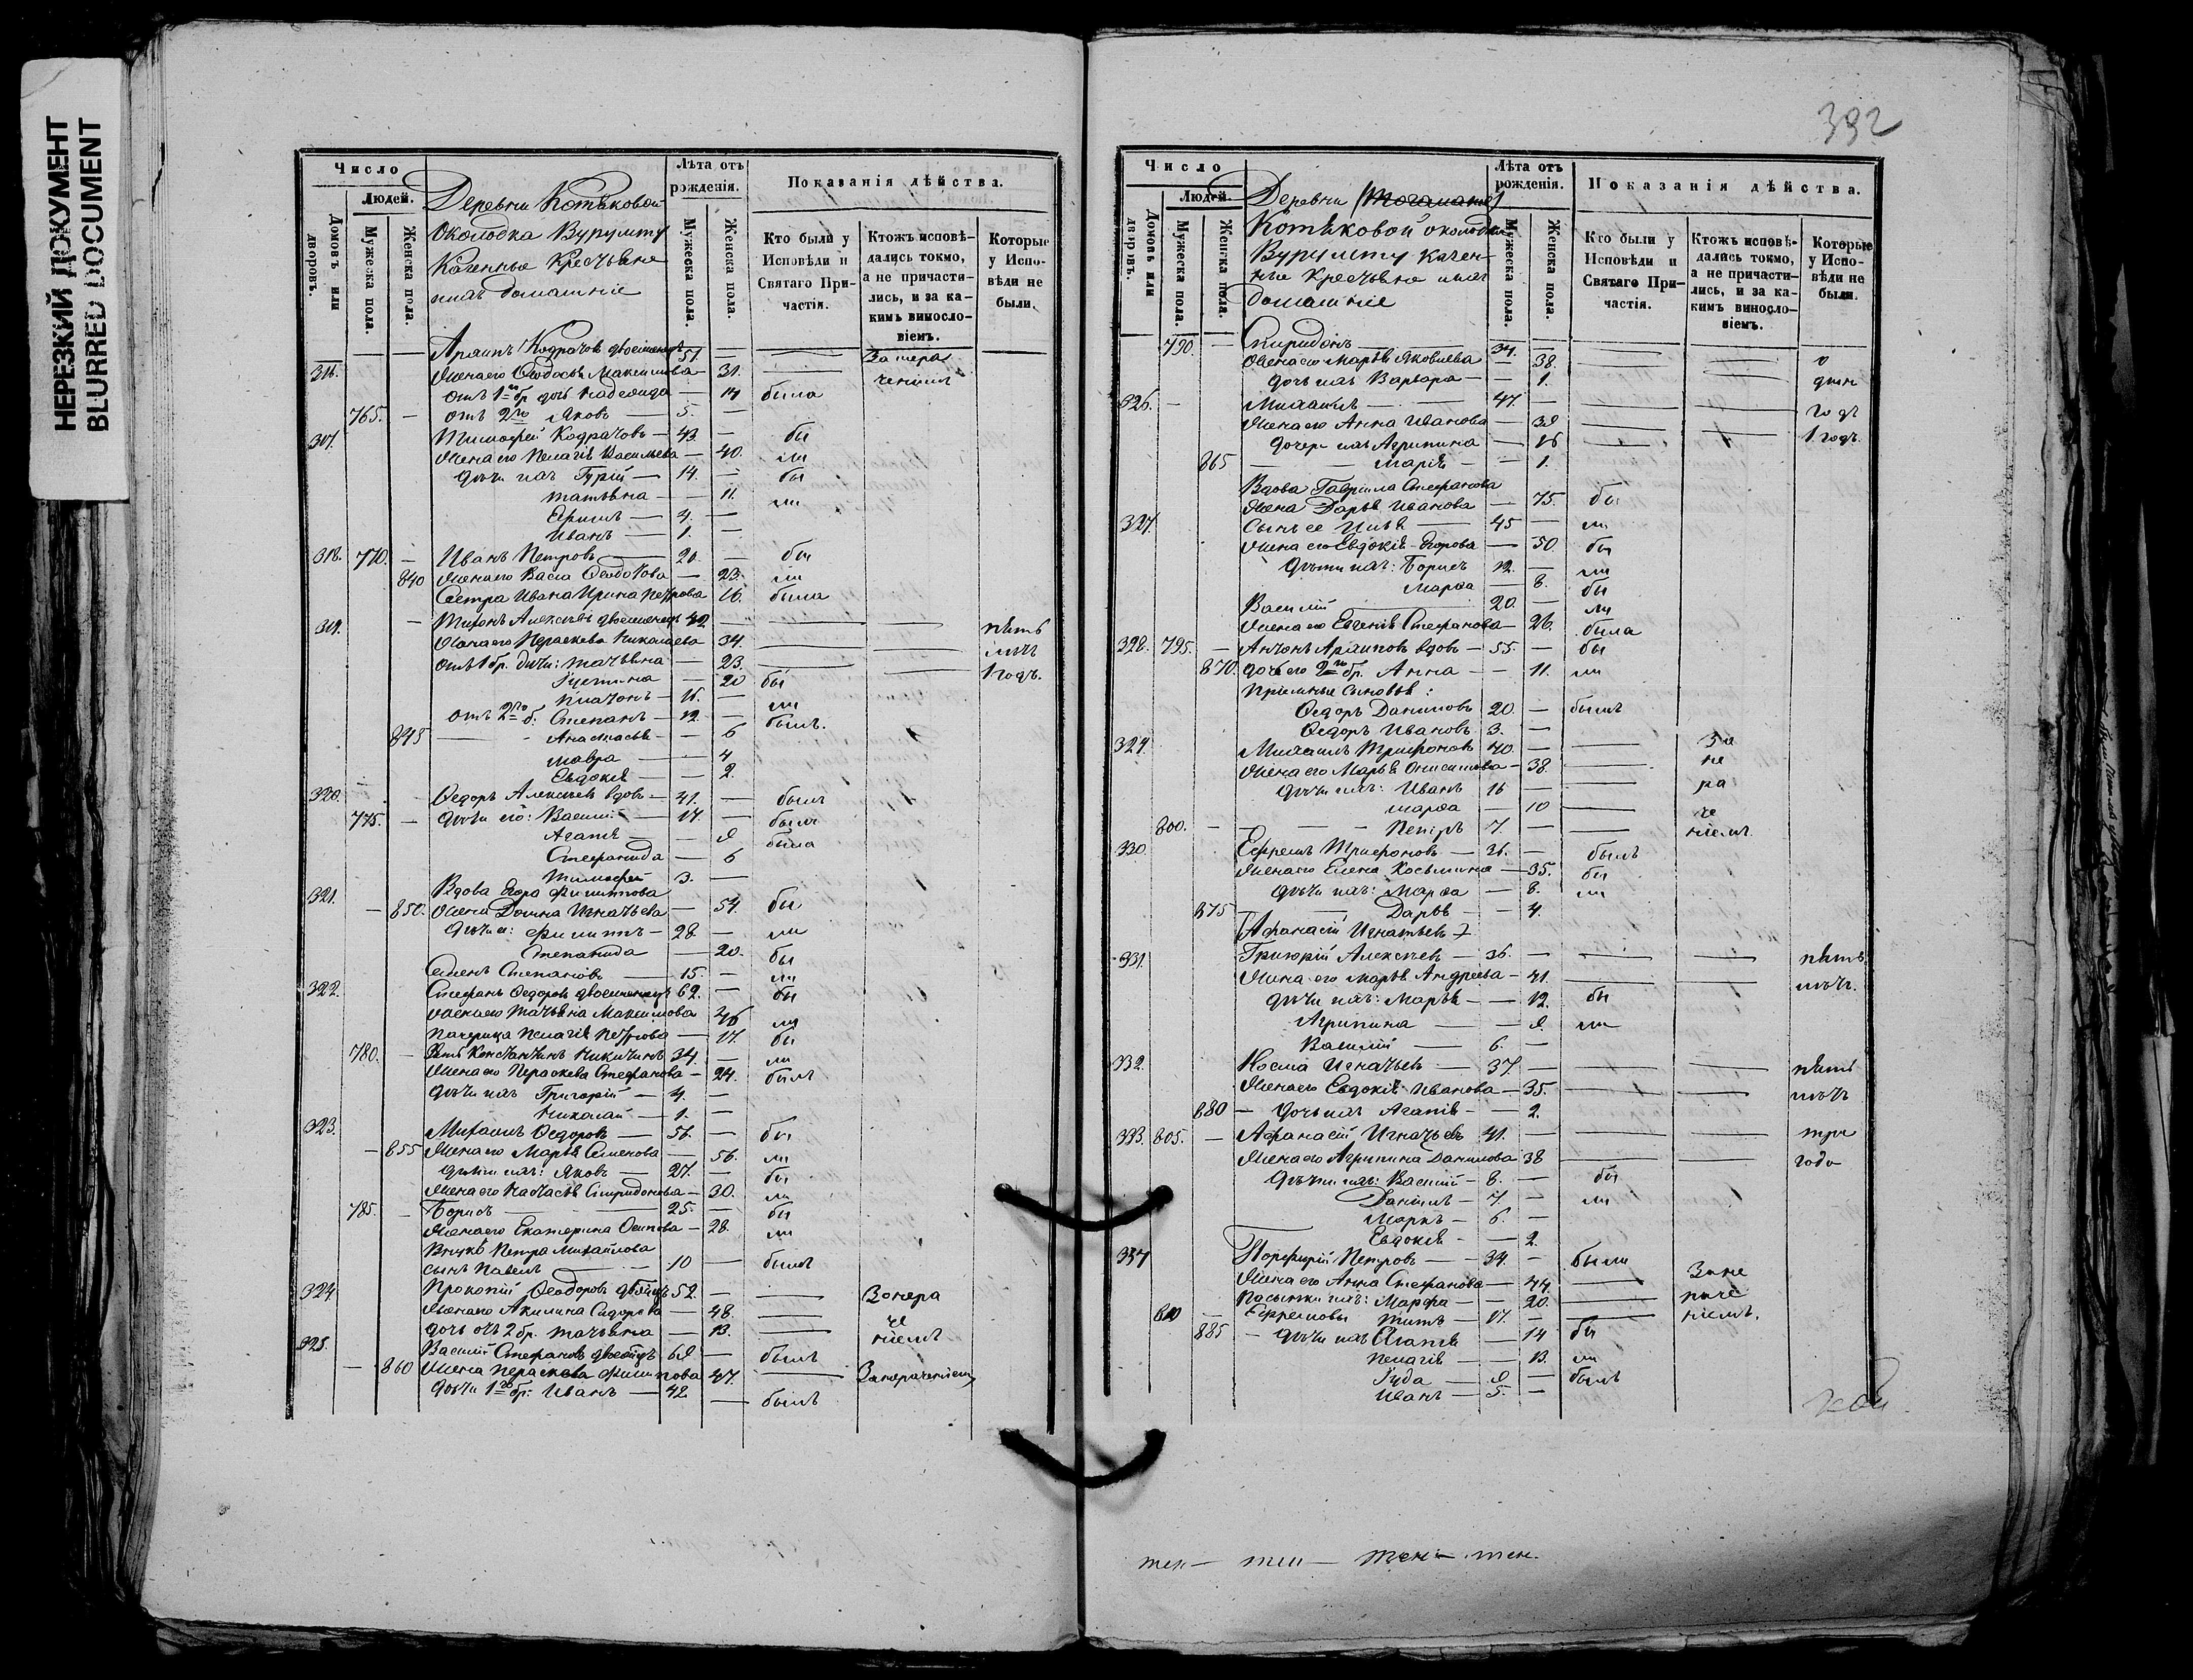 НЕРЕЗКИЙ ДОКУМЕНТ
BLURRED DOCUMENT
Число
Людей.
Домовъ или дворовъ.
Мужеска пола.
Женска пола.
Деревни Котяковой
околодка Вурумту
Казенные Крестьяне
ихъ домашніе
Лѣта отъ рожденія.
Мужеска пола.
Женска пола.
Показанія дѣйства.
Кто были у Исповѣди и Святаго Причастія.
Ктожъ исповѣдались токмо, а не причастились, и за какимъ винословіемъ.
Которые у Исповѣди не были.
Архипъ Кодратовъ двоеженецъ 51. —
316. Жена его Ѳеодосья Максимова — 31.
отъ 1го бр дочь Надежда — 14 была
765. — отъ 2го Яковъ — 5. —
317. Тимофей Кодратовъ — 43. — бы
Жена его Пелагія Васильева — 40. ли
дѣти ихъ Гурій — 14. — бы
Татьяна — 11. ли
Ефимъ — 4. —
Иванъ — 1. —
318. 770. — Иванъ Петровъ — 20. — бы
840 Жена его Васса — 23. ли
Сестра Ивана Ирина Петрова 16. была
319. — Тихонъ Алексѣевъ двоеженецъ 42. — пять
Жена его Параскева Николаева 34. лѣтъ
отъ 1 бр. дѣти: Татьяна — 23. 1 годъ.
Іустина — 20 бы
Платонъ — 16. — ли
отъ 2го б: Степанъ — 12. — былъ.
845 Анастасья — 6
Мавра — 4
Евдокія — 2.
320. Ѳедоръ Алексѣевъ вдовъ — 41. — былъ
775. — дѣти его: Василій — 14. — былъ
Агафія — 9 была
Стефанида — 6
Тимофей 3. —
321. Вдова Егора Филиппова
— 850. жена Домна Игнатьева — 54. бы
дѣти ея: Филиппъ — 28. — ли
Степанида — 20. бы
Семенъ Степановъ — 15. — ли
322. Стефанъ Ѳедоровъ двоеженецъ 62. — бы
жена его Татьяна Максимова 46 ли
падчерица Пелагія Петрова — 17. бы
780. — зять Константинъ Никитинъ 34. — ли
Жена его Параскева Стефанова — 24. былъ
дѣти ихъ Григорій — 4. —
Николай — 1. —
323. Михаилъ Ѳедоровъ — 51. — бы
— 855 Жена его Марья Семенова — 56. ли
дѣти ихъ: Яковъ — 27. — бы
Жена его Настасья Спиридонова — 30. ли
785. — Борисъ — 25. — бы
Жена его Екатерина Осипова — 28. ли
Внукъ Петра Михайлова
сынъ Павелъ — 10 — былъ
324 Прокопій Ѳеодоровъ 52. —
Жена его Акилина Сидорова — 48.
дочь отъ 2 бр. Татьяна — 13.
325. Василій Стефановъ 69 — былъ
— 860 Жена Параскева Филиппова 47.
дѣти 1го бр: Иванъ — 42 — былъ
392
Число
Людей.
Домовъ или дворовъ.
Мужеска пола.
Женска пола.
Деревни
Котяковой околодка
Вурумту казен-
ные крестьяне ихъ
домашніе
Лѣта отъ рожденія.
Мужеска пола.
Женска пола.
Показанія дѣйства.
Кто были у Исповѣди и Святаго Причастія.
Ктожъ исповѣдались токмо, а не причастились, и за какимъ винословіемъ.
Которые у Исповѣди не были.
790. — Спиридонъ — 34. —
Жена его Марья Яковлева — 38. о
дочь ихъ Варвара — 1. динъ
326. — Михаилъ — 47. — годъ
Жена его Анна Иванова — 39 1 годъ.
дочери ихъ Агрипина — 16
865 — Марія — 1.
Вдова Гавріила Стефанова
жена Дарья Иванова — 75. бы
327. Сынъ ее Илья — 45 — ли
Жена его Евдокія Егорова — 50. бы
дѣти ихъ: Борисъ 12. — ли
Марфа — 8. бы
Василій — 20. — ли
Жена его Евгенія Стефанова — 26. была
328. 795. — Антонъ Архиповъ вдовъ — 55. — бы
870. дочь его 2го бр. Анна — 11. ли
Пріемные сыновья:
Ѳедоръ Даниловъ 20. — былъ
Ѳедоръ Ивановъ 3. —
329. Михаилъ Трифоновъ 40. —
Жена его Марья Онисимова — 38.
дѣти ихъ: Иванъ 16 —
Марфа — 10
800. — Петръ 7. —
330. Ефремъ Трифоновъ — 36. — былъ
Жена его Елена Космина — 35. бы
дѣти ихъ: Марфа — 8. ли
875 — Дарья — 4.
(Афанасій Игнатьевъ)
331. Григорій Алексѣевъ — 36. — пять
Жена его Марья Андреева — 41. лѣтъ.
дѣти ихъ: Марья — 12. бы
Агрипина — 9. ли
Василій — 6. —
332. Косма Игнатьевъ — 37. — пять
Жена его Евдокія Иванова — 35. лѣтъ
880 — дочь ихъ Агапія — 2.
333. 805. — Афанасій Игнатьевъ 41. — три
Жена его Агрипина Данилова 38 года
дѣти ихъ: Василій — 8. — бы
Даніилъ — 7 — ли
Маркъ — 6. —
Евдокія — 2.
334 Порфирій Петровъ — 34. — были
Жена его Анна Стефанова — 44.
Марфа — 20.
810 — Ефремовы Титъ — 17. —
885 — дѣти ихъ Агапія — 14 бы
Пелагія — 13. ли
Іуда — 9 — былъ
Иванъ — 5. —